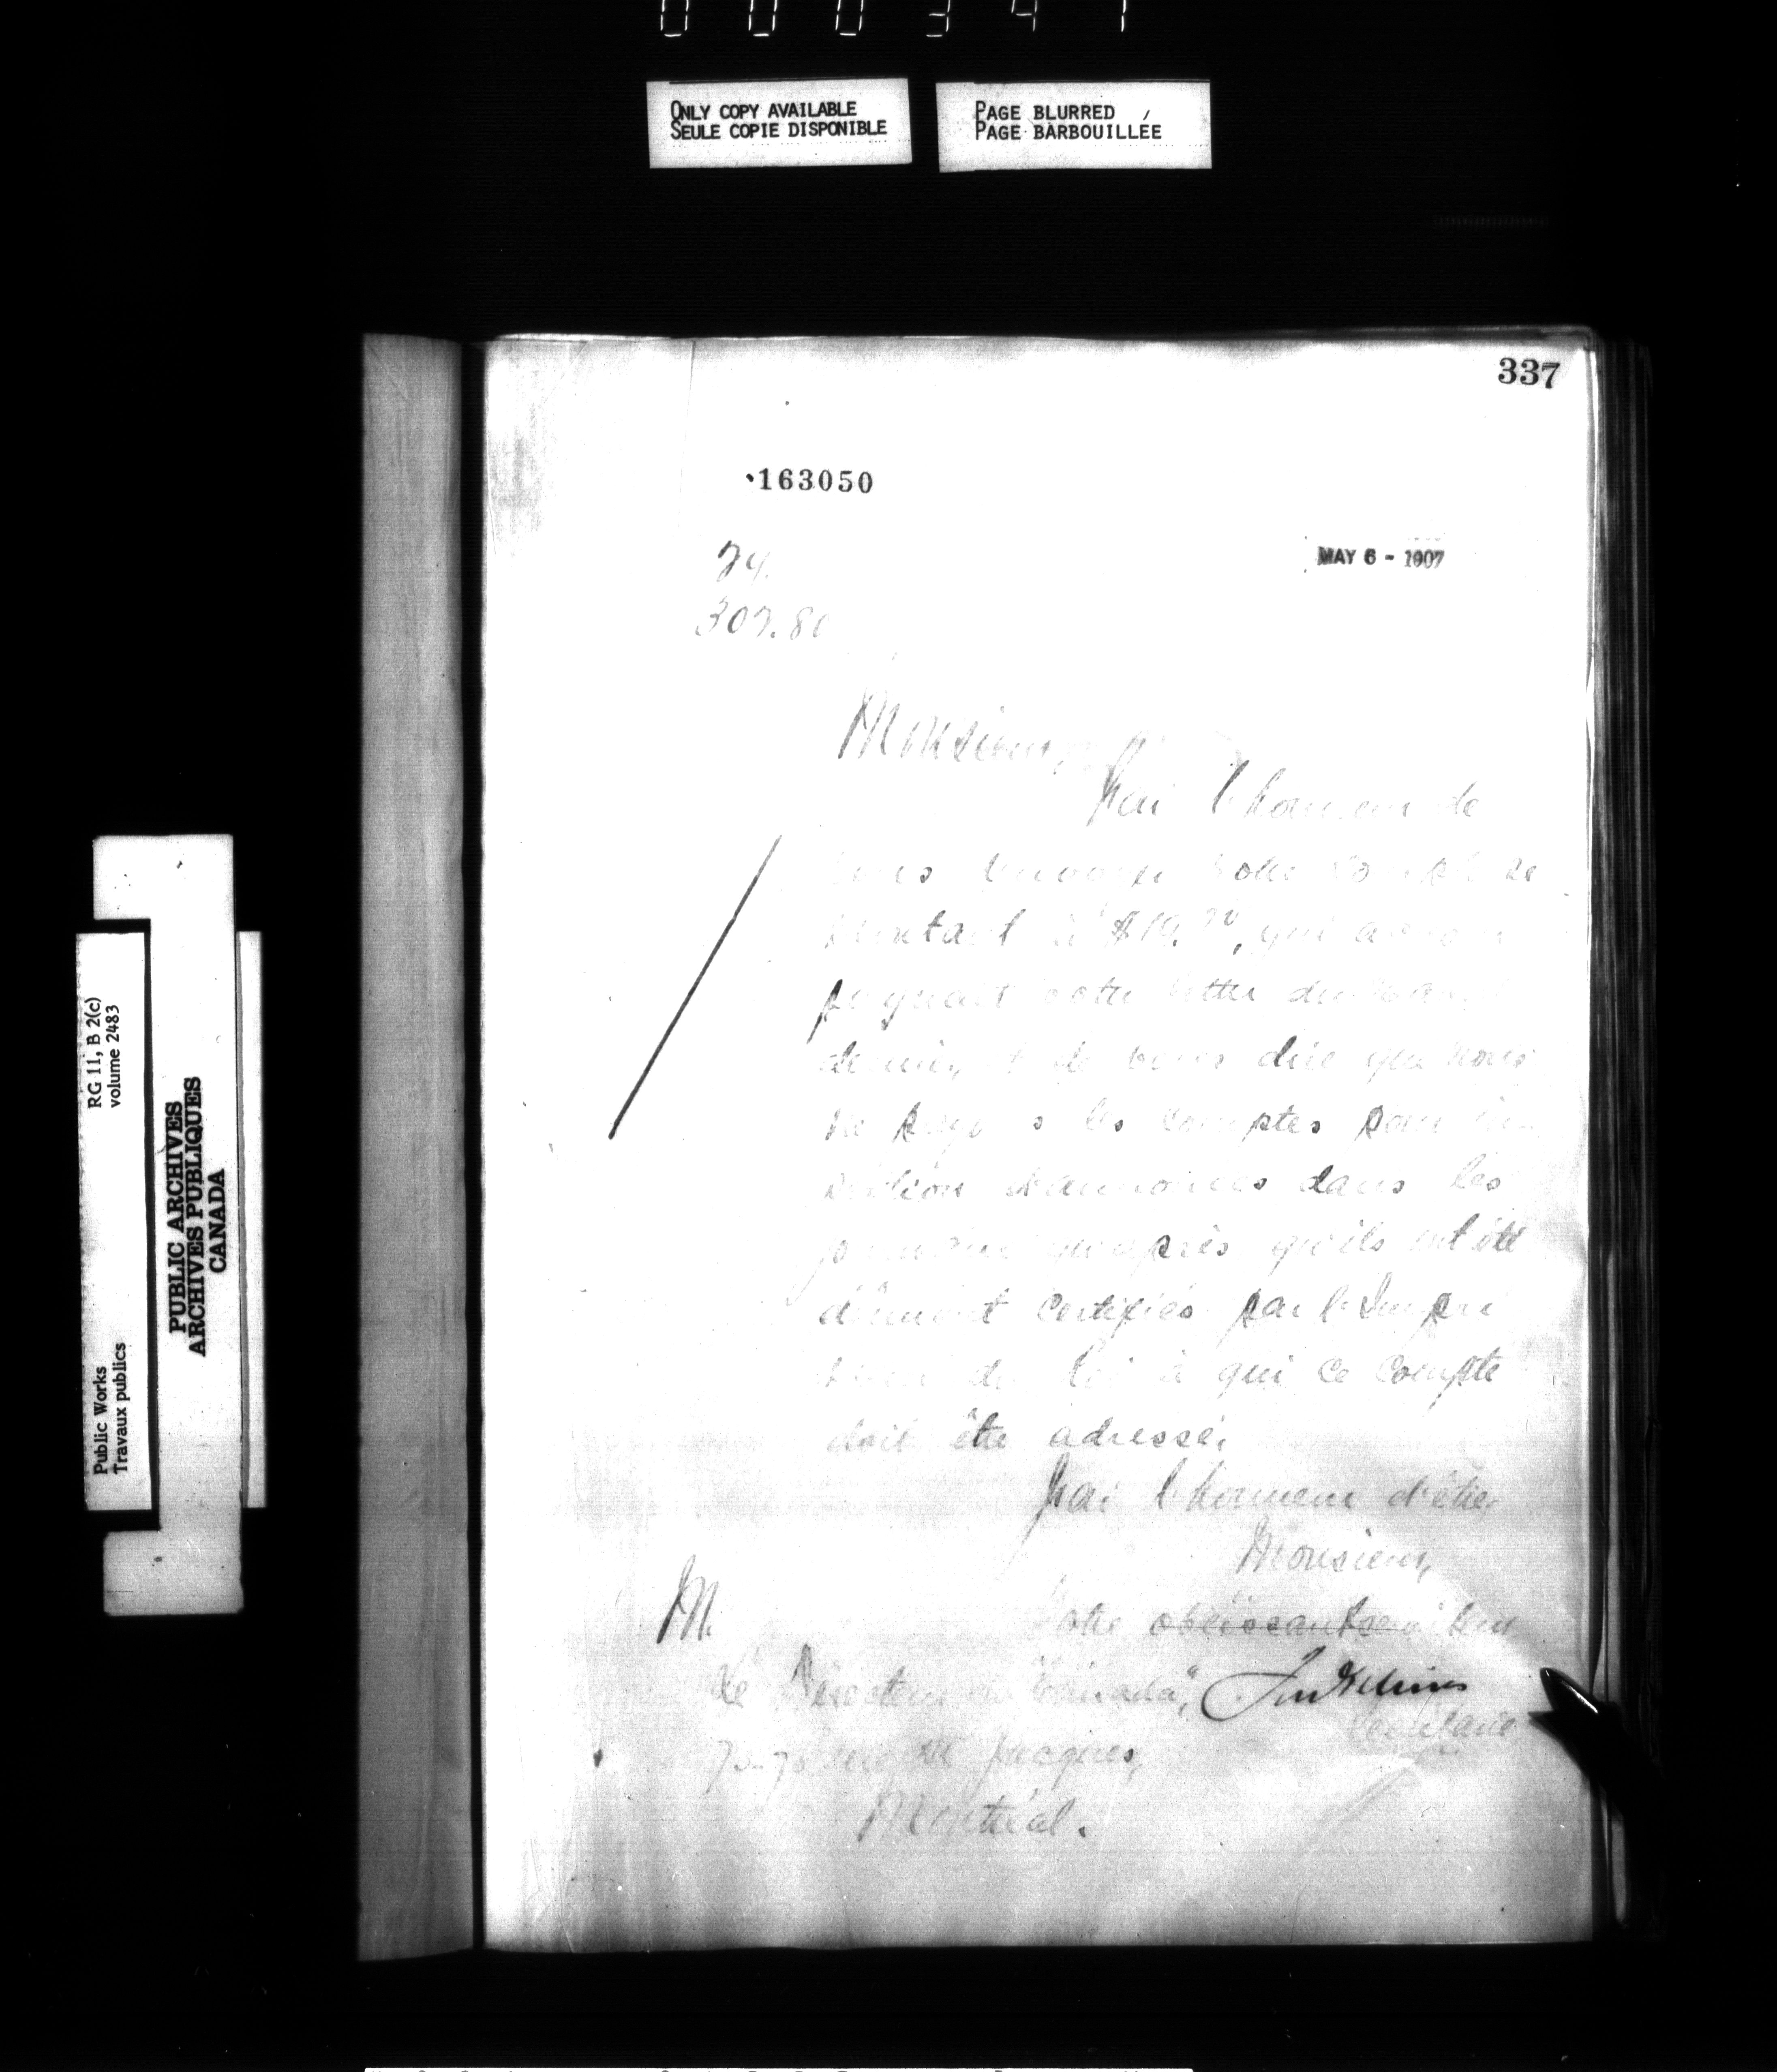 000347
ONLY COPY AVAILABLE
SEULE COPIE DISPONIBLE
PAGE BLURRED
PAGE BARBOUILLÉE
337
163050
MAY 6 - 1907
307.80
Monsieur,
J'ai l'honneur de
vous renvoyer votre compte se
montant à qui accom
pagnait votre lettre du
dernier, et de vous dire que nous
ne payons les comptes pour in
sertion d'annonces dans les
journaux qu'après qu'ils ont été
dûment certifiés par l'Impri
meur du Roi à qui ce compte
doit être adressé.
J'ai l'honneur d'être,
Monsieur,
Votre obéissant serviteur
M.
Le Directeur du "Canada",
Secrétaire
rue St Jacques,
Montréal.
RG 11, B 2(c)
volume 2483
Public Works
Travaux publics
PUBLIC ARCHIVES
ARCHIVES PUBLIQUES
CANADA